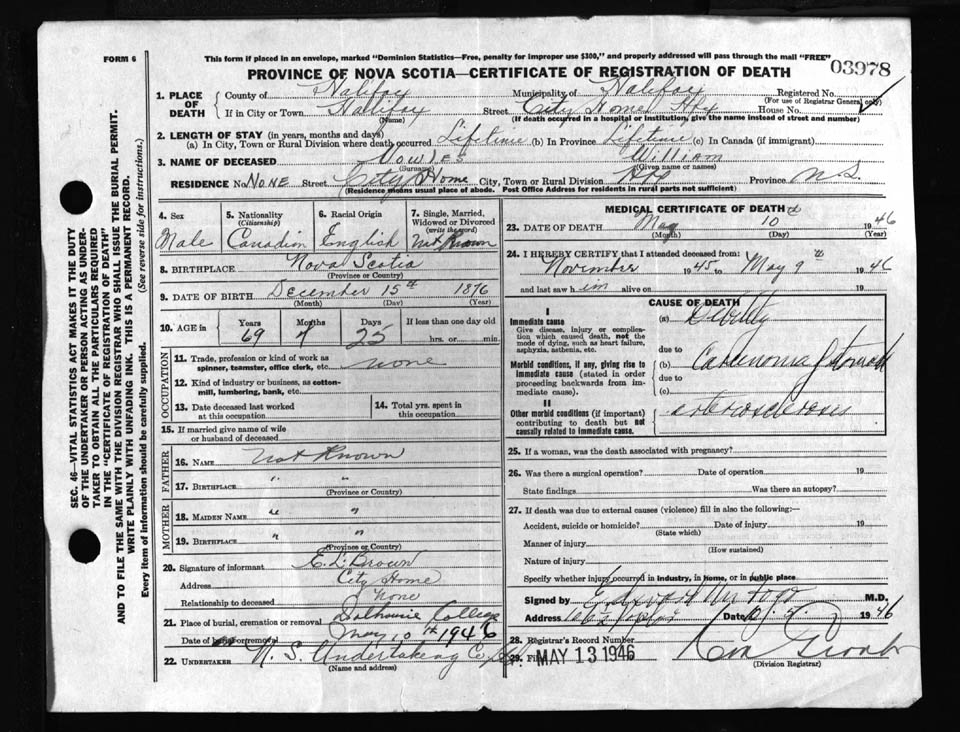 FORM 6
This form if placed in an envelope, marked "Dominion Statistics—Free, penalty for improper use $300," and properly addressed will pass through the mail "FREE"
PROVINCE OF NOVA SCOTIA—CERTIFICATE OF REGISTRATION OF DEATH
03978
1. PLACE OF DEATH
County of Halifax Municipality of Halifax Registered No.
(For use of Registrar General only)
If in City or Town Halifax Street City Home Hfx House No.
(Name) (If death occurred in a hospital or institution, give the name instead of street and number)
2. LENGTH OF STAY (in years, months and days)
(a) In City, Town or Rural Division where death occurred Lifetime (b) In Province Lifetime (c) In Canada (if immigrant)
3. NAME OF DECEASED Vowles William
(Surname) (Given name or names)
RESIDENCE No. None Street City Home City, Town or Rural Division Hfx Province N.S.
(Residence means usual place of abode. Post Office Address for residents in rural parts not sufficient)
SEC. 46—VITAL STATISTICS ACT MAKES IT THE DUTY
OF THE UNDERTAKER OR PERSON ACTING AS UNDER-
TAKER TO OBTAIN ALL THE PARTICULARS REQUIRED
IN THE "CERTIFICATE OF REGISTRATION OF DEATH"
AND TO FILE THE SAME WITH THE DIVISION REGISTRAR WHO SHALL ISSUE THE BURIAL PERMIT.
WRITE PLAINLY WITH UNFADING INK. THIS IS A PERMANENT RECORD.
Every item of information should be carefully supplied. (See reverse side for instructions.)
4. Sex 5. Nationality (Citizenship) 6. Racial Origin 7. Single, Married, Widowed or Divorced (write the word)
Male Canadian English Not Known
8. BIRTHPLACE Nova Scotia
(Province or Country)
9. DATE OF BIRTH December 15th 1876
(Month) (Day) (Year)
10. AGE in Years Months Days If less than one day old
69 25 hrs. or min.
OCCUPATION
11. Trade, profession or kind of work as spinner, teamster, office clerk, etc. none
12. Kind of industry or business, as cotton-mill, lumbering, bank, etc.
13. Date deceased last worked at this occupation
14. Total yrs. spent in this occupation
15. If married give name of wife or husband of deceased
FATHER
16. NAME Not Known
17. BIRTHPLACE " "
(Province or Country)
MOTHER
18. MAIDEN NAME " "
19. BIRTHPLACE " "
(Province or Country)
20. Signature of informant E. L. Brown
Address City Home
Relationship to deceased None
21. Place of burial, cremation or removal Dalhousie College
Date of burial or removal May 10th 1946
22. UNDERTAKER N. S. Undertaking Co
(Name and address)
MEDICAL CERTIFICATE OF DEATH
23. DATE OF DEATH May 10 1946
(Month) (Day) (Year)
24. I HEREBY CERTIFY that I attended deceased from:
November 1945 to May 9th 1946
and last saw him alive on 19
CAUSE OF DEATH
I
Immediate cause
Give disease, injury or complication which caused death, not the mode of dying, such as heart failure, asphyxia, asthenia, etc.
(a) Debility
due to
Morbid conditions, if any, giving rise to immediate cause (stated in order proceeding backwards from immediate cause)
(b) Carcinoma of stomach
due to
(c)
II
Other morbid conditions (if important) contributing to death but not causally related to immediate cause.
arteriosclerosis
25. If a woman, was the death associated with pregnancy?
26. Was there a surgical operation? Date of operation 19
State findings Was there an autopsy?
27. If death was due to external causes (violence) fill in also the following:—
Accident, suicide or homicide? Date of injury 19
(State which)
Manner of injury
(How sustained)
Nature of injury
Specify whether injury occurred in industry, in home, or in public place
Signed by M.D.
Address Date 1946
28. Registrar's Record Number
29. Filed MAY 13 1946
(Division Registrar)